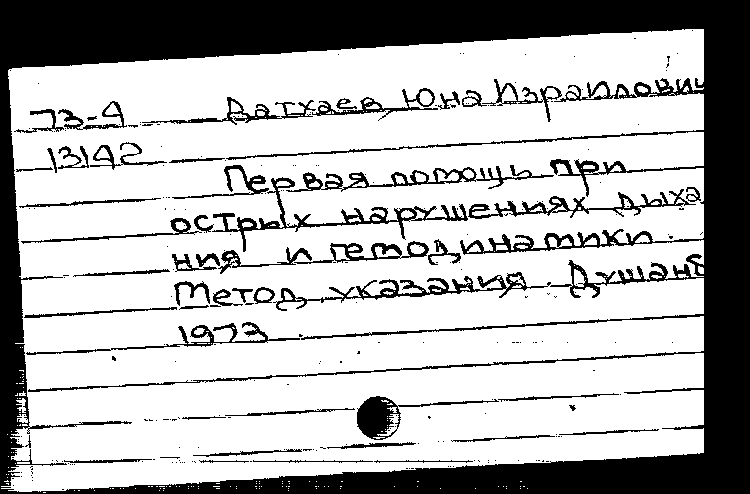 73-4 Ватхаев, Юна Израилович
13142
Первая помощь при
острых нарушениях дыха
ния и гемодинамики.
Метод. указания. Душанб
1973